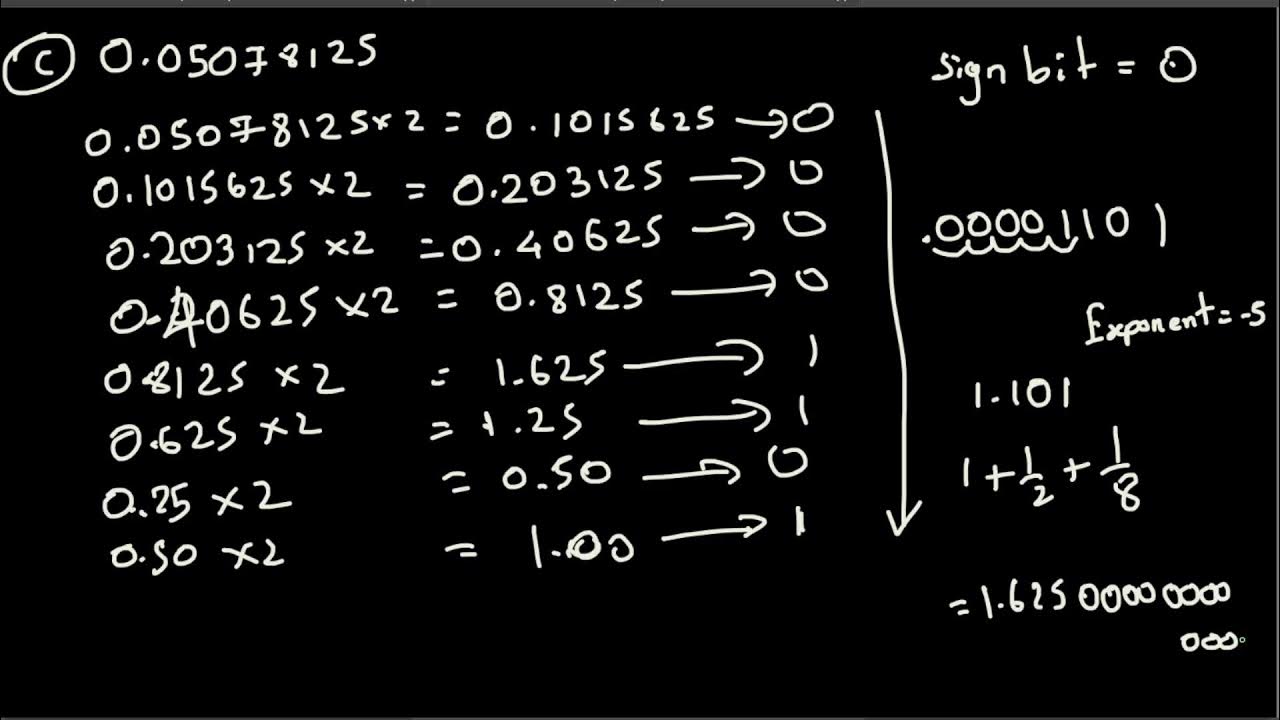 c 0.05078125
0.05078125×2 = 0.1015625 → 0
0.1015625 ×2 = 0.203125 → 0
0.203125 ×2 = 0.40625 → 0
0.40625 ×2 = 0.8125 → 0
0.8125 ×2 = 1.625 → 1
0.625 ×2 = 1.25 → 1
0.25 ×2 = 0.50 → 0
0.50 ×2 = 1.00 → 1
sign bit = 0
.00001101
Exponent = -5
1.101
1 + 1/2 + 1/8
= 1.625 00000 0000
000